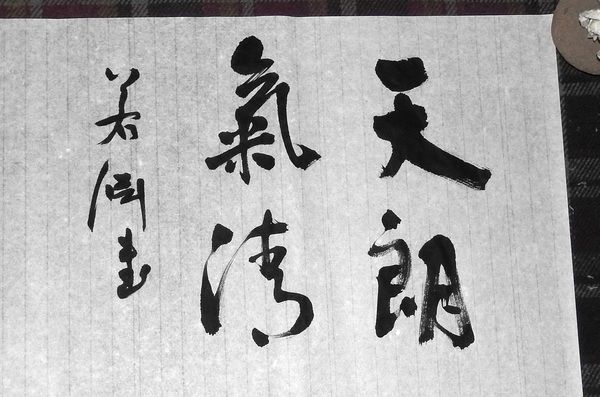 天朗
氣清
若岡書